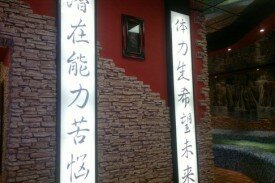 体力生希望未来
潜在能力苦悩